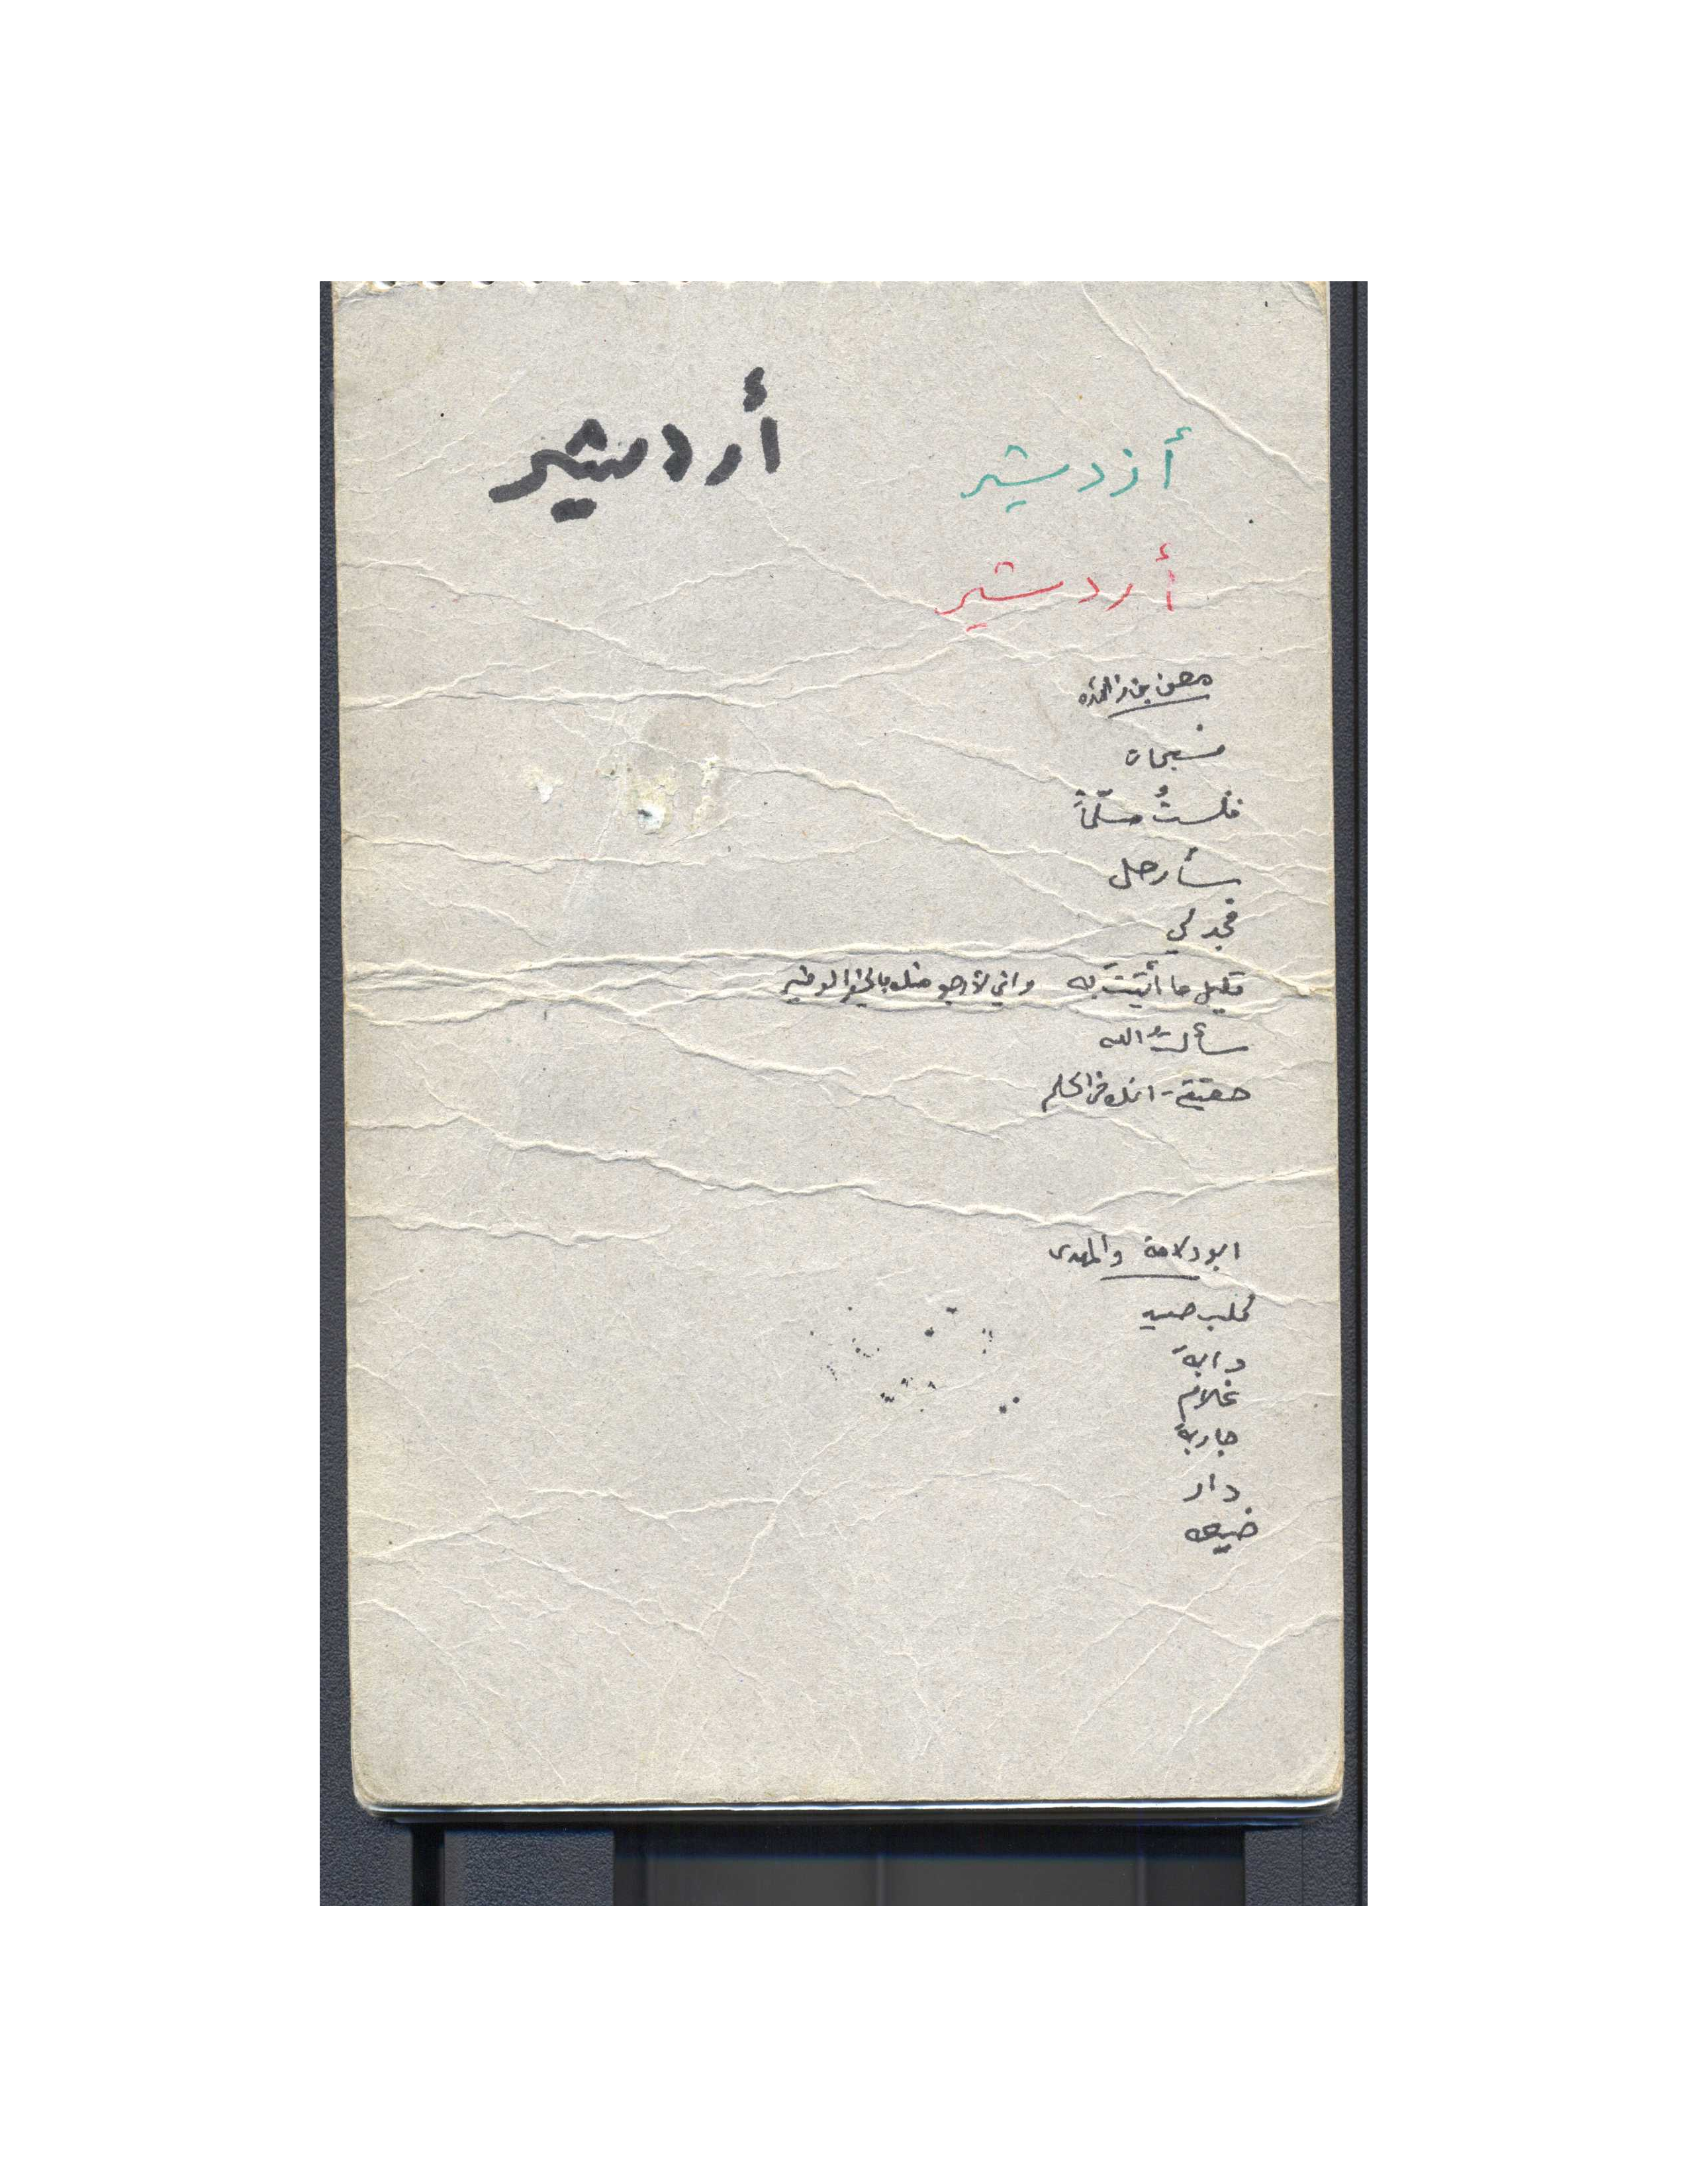 أزدشير أردشير
أردشير
معن بن زائده
فسبحان
فلستُ مسلّماً
سأرحل
فجد لي
قليل ما أتيتَ به واني لأرجو منك بالخير الوفير
سألتُ الله
حقيقة - انك في الحلم
ابو دلامة والمهدى
كلب صيد
دابة
غلام
جارية
دار
ضيعه